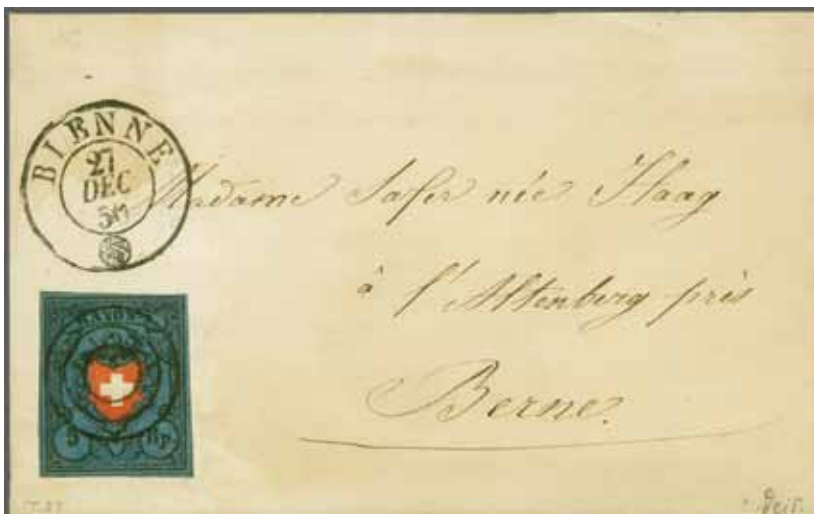 BIENNE
27
DEC
Madame Safer née Haag
à l'Altenberg près
Berne.
RAYON I
5 Rp.